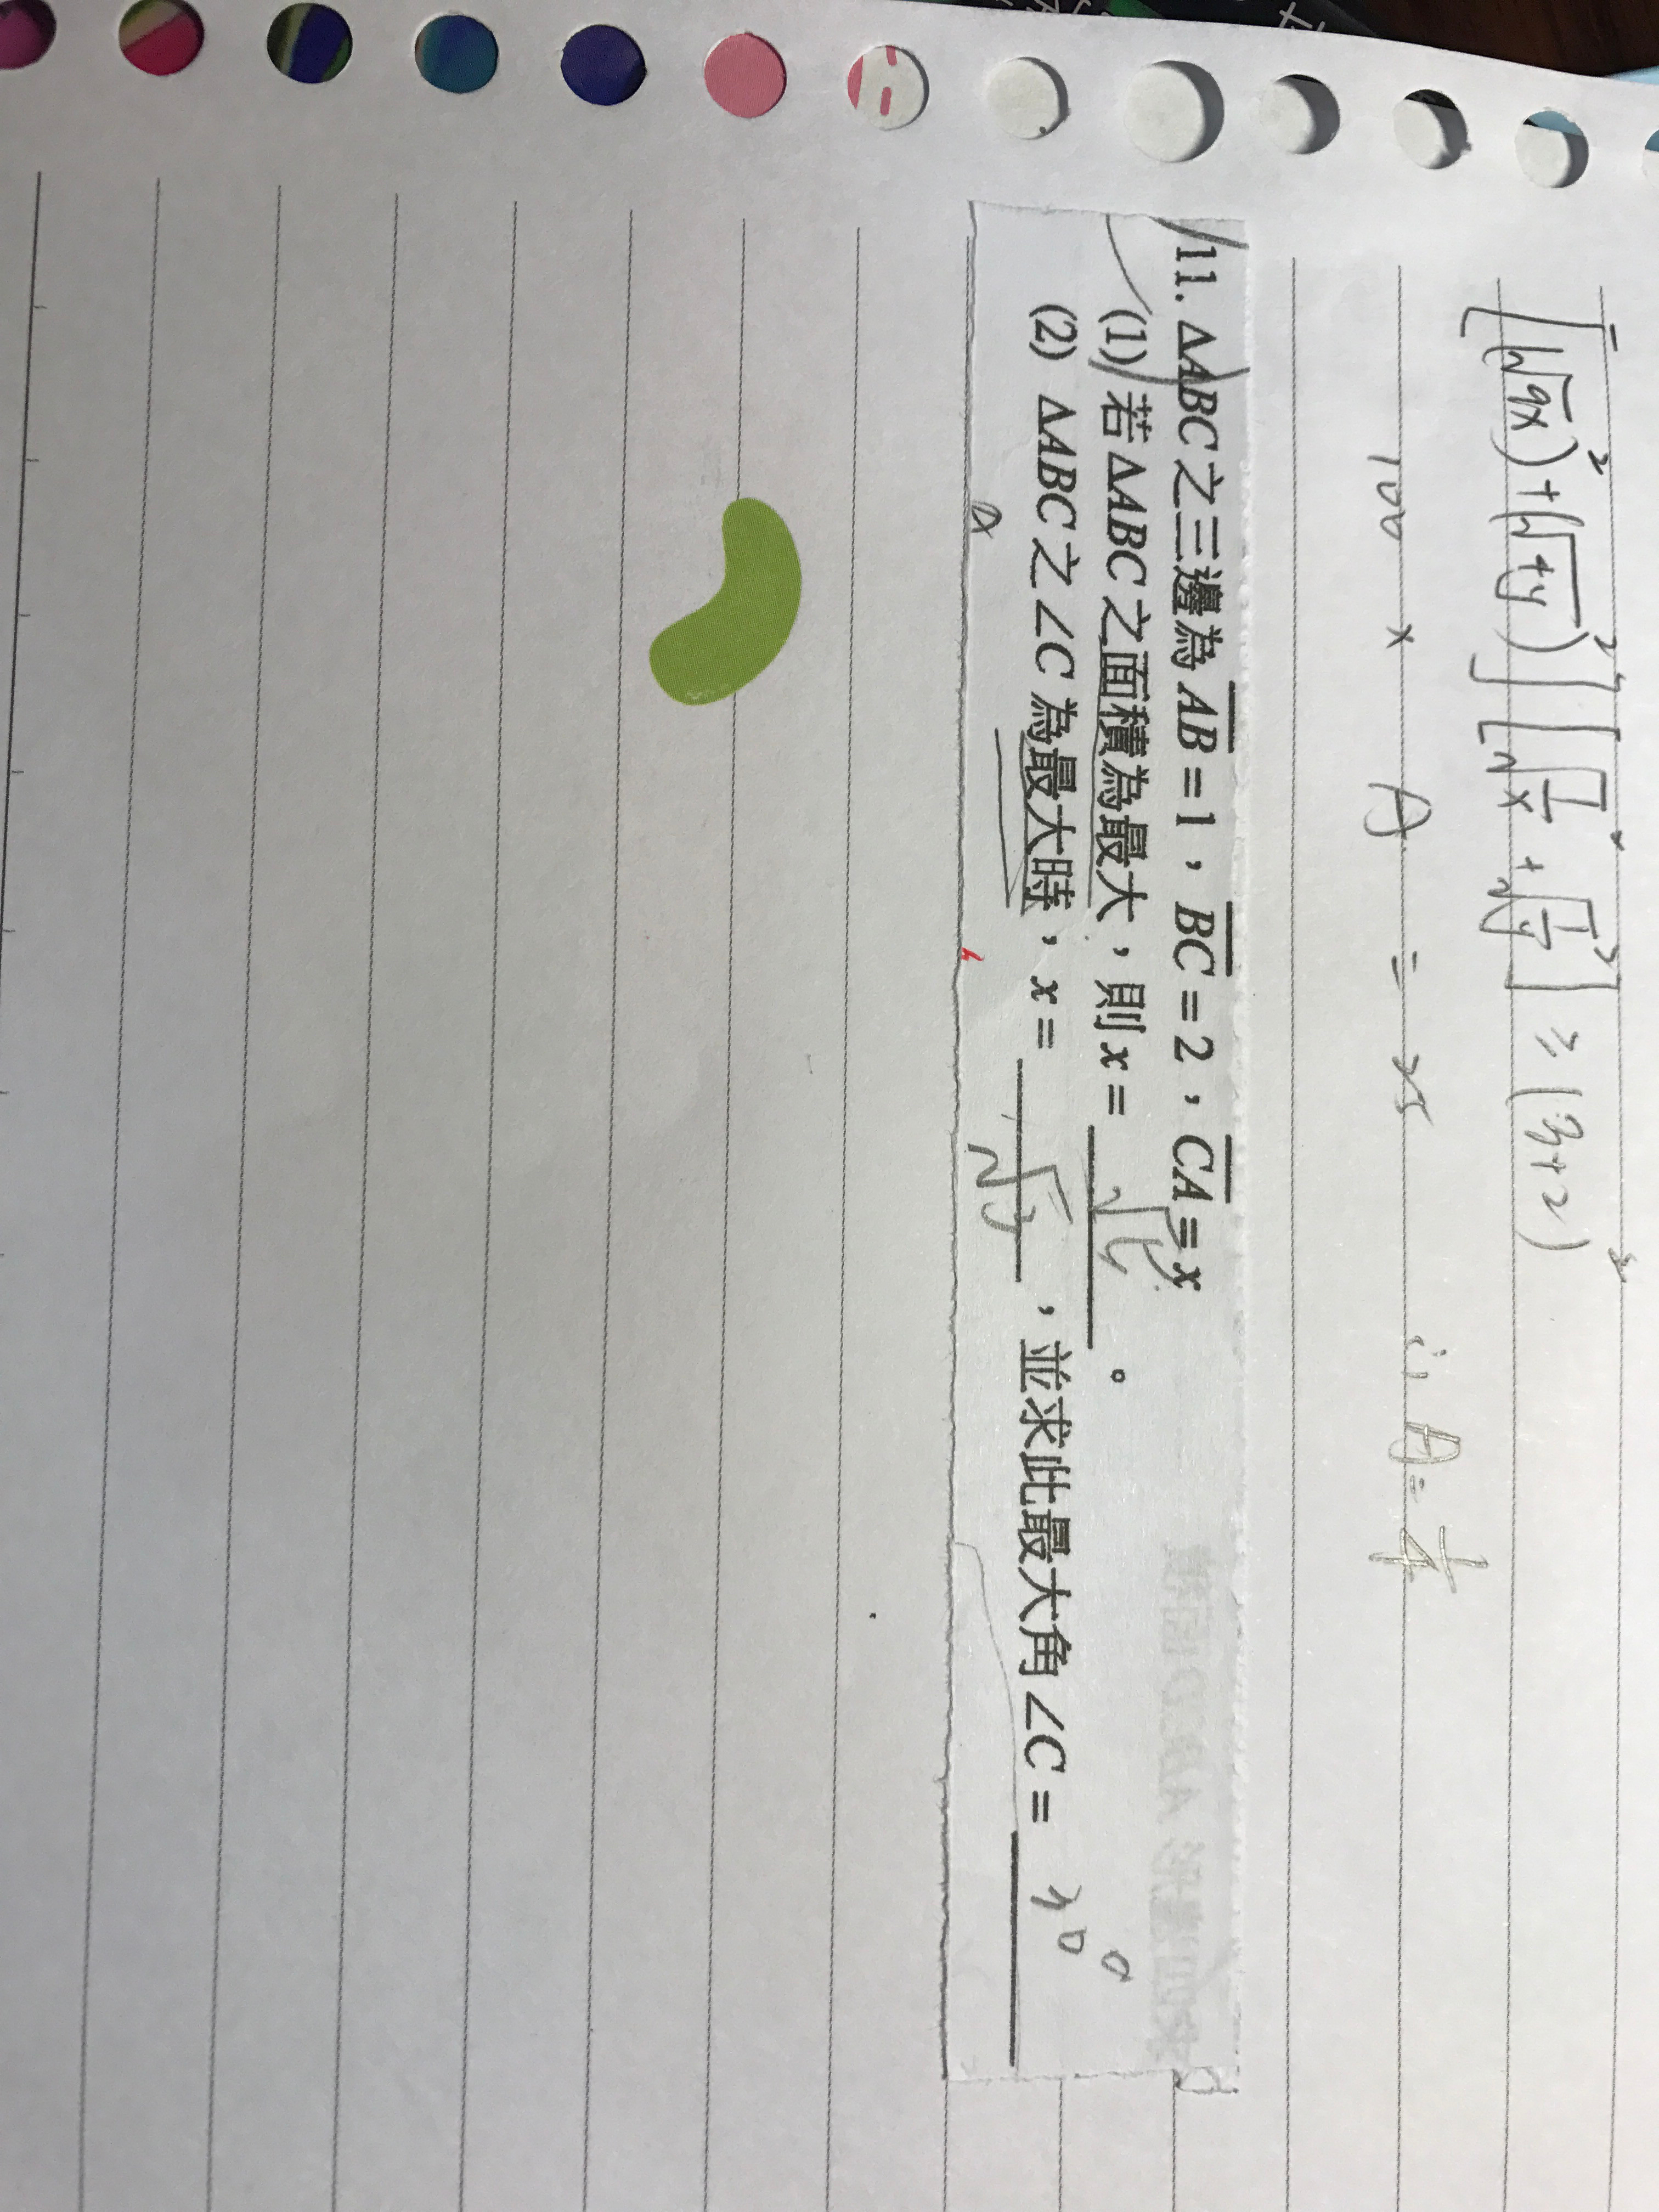 [(√9x)²+(√4y)²][√1/x² + √1/y²] ≥ (3+2)²
100 × A = 25 ∴ A = 1/4
11. △ABC之三邊為 AB = 1,BC = 2,CA = x
(1) 若△ABC之面積為最大,則 x = √5。
(2) △ABC之∠C為最大時,x = √3,並求此最大角∠C = 30°